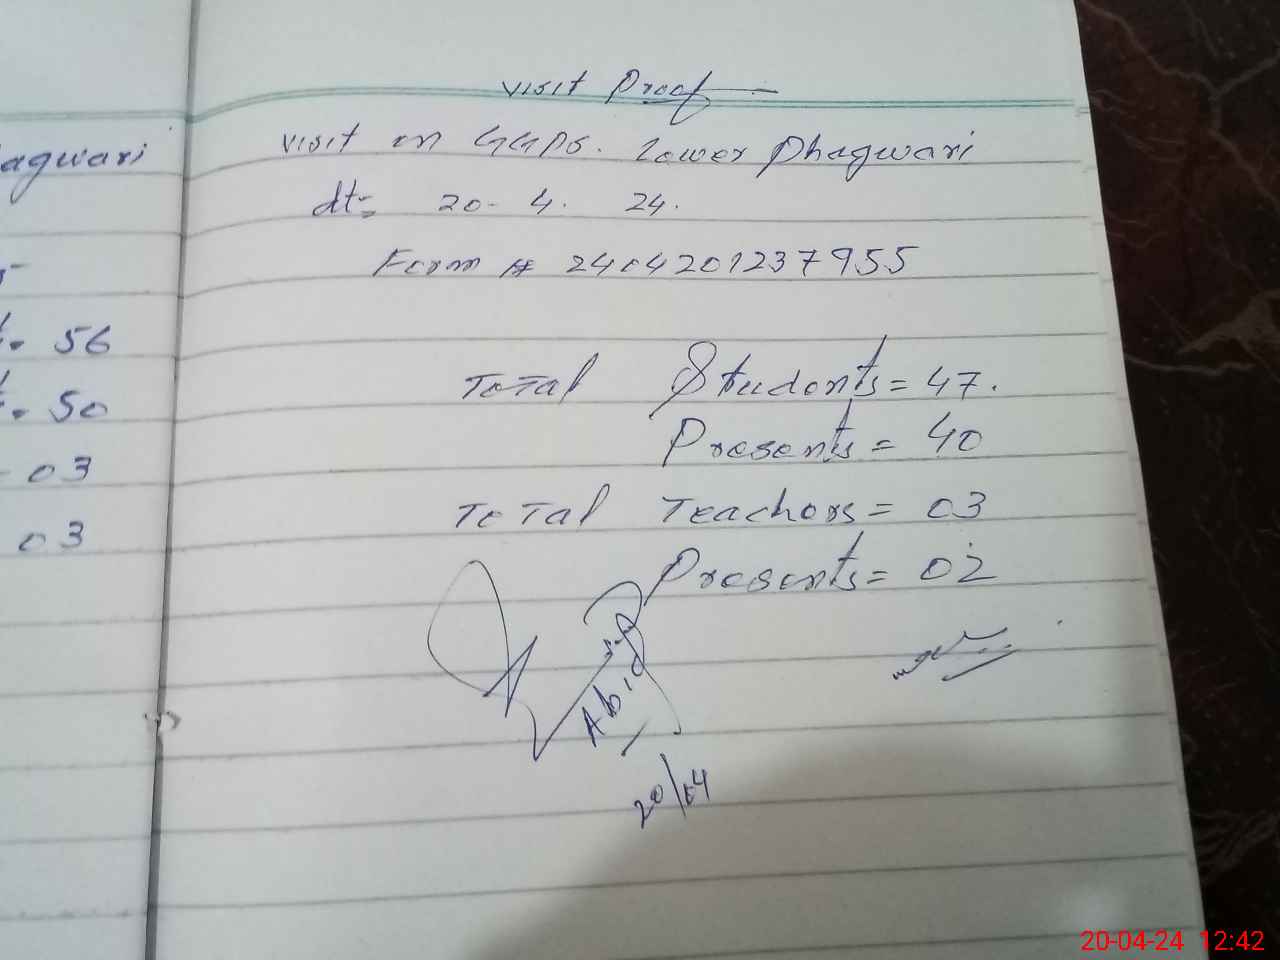 agwari
56
50
03
03
Visit Proof
Visit on GGPS. Lower Phagwari
dt= 20- 4. 24.
Form # 2404201237955
Total Students = 47.
Presents = 40
Total Teachors = 03
Presents = 02
Abid
20/04
20-04-24 12:42